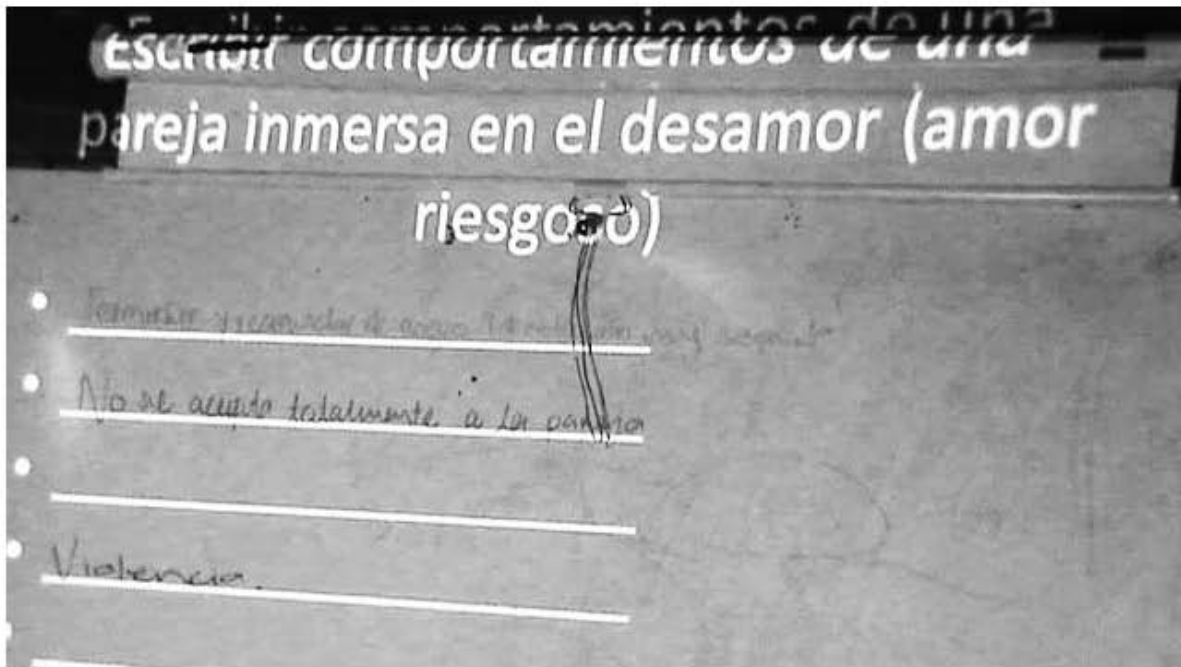 Escribir comportamientos de una
pareja inmersa en el desamor (amor
riesgoso)
Terminar y
No se acepta totalmente a la pareja
Violencia.